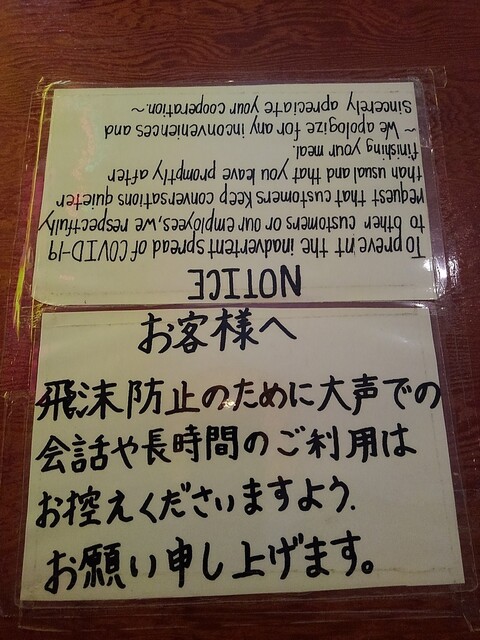 NOTICE
To prevent the inadvertent spread of COVID-19
to other customers or our employees, we respectfully
request that customers keep conversations quieter
than usual and that you leave promptly after
finishing your meal.
~ We apologize for any inconveniences and
Sincerely apreciate your cooperation.~
お客様へ
飛沫防止のために大声での
会話や長時間のご利用は
お控えくださいますよう.
お願い申し上げます。